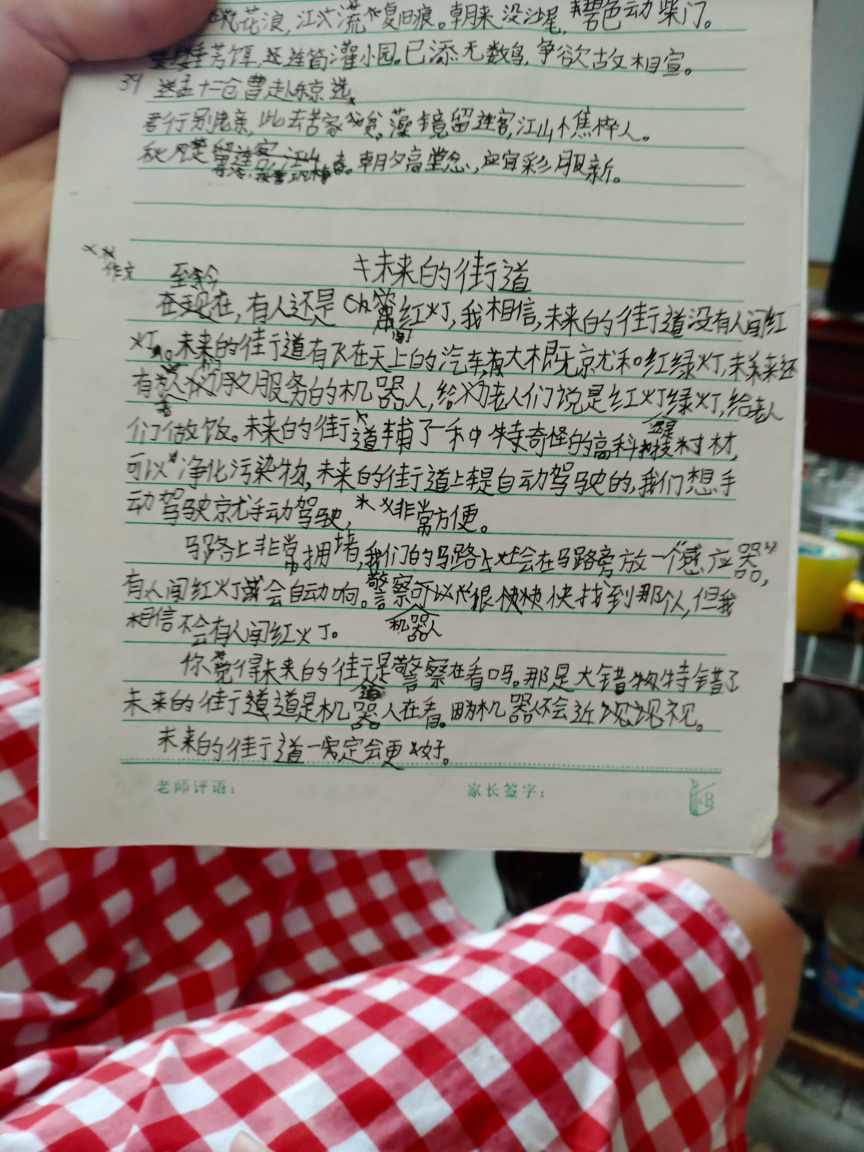 花浪,江沙流复旧痕。朝来没沙尾,碧色动柴门。
芳饵,还连筒灌小园。已添无数鸟,争欲故相宣。
39 送孟十二仓曹赴东京选
君行别老亲,此去苦家贫。藻镜留连客,江山憔悴人。
朝夕高堂念,应宜彩服新。
作文
未来的街道
至今
在现在,有人还是ch常红灯,我相信,未来的街道没有人闯红
灯。未来的街道有飞在天上的汽车,大概就和红绿灯,未来还
有服务的机器人,给老人们说是红灯绿灯,给老人
们做饭。未来的街道铺了一种特奇怪的高科技材,
可以净化污染物,未来的街道上是自动驾驶的,我们想手
动驾驶就手动驾驶,非常方便。
马路上非常拥堵,我们的马路上会在马路旁放一个感应器,
有人闯红灯就会自动响。警察可以很快快找到那个人,但我
机器人
相信不会有人闯红灯。
你觉得未来的街道是警察在看吗。那是大错特错了
未来的街道道是机器人在看。因为机器不会近视。
未来的街道一定会更好。
老师评语:
家长签字: